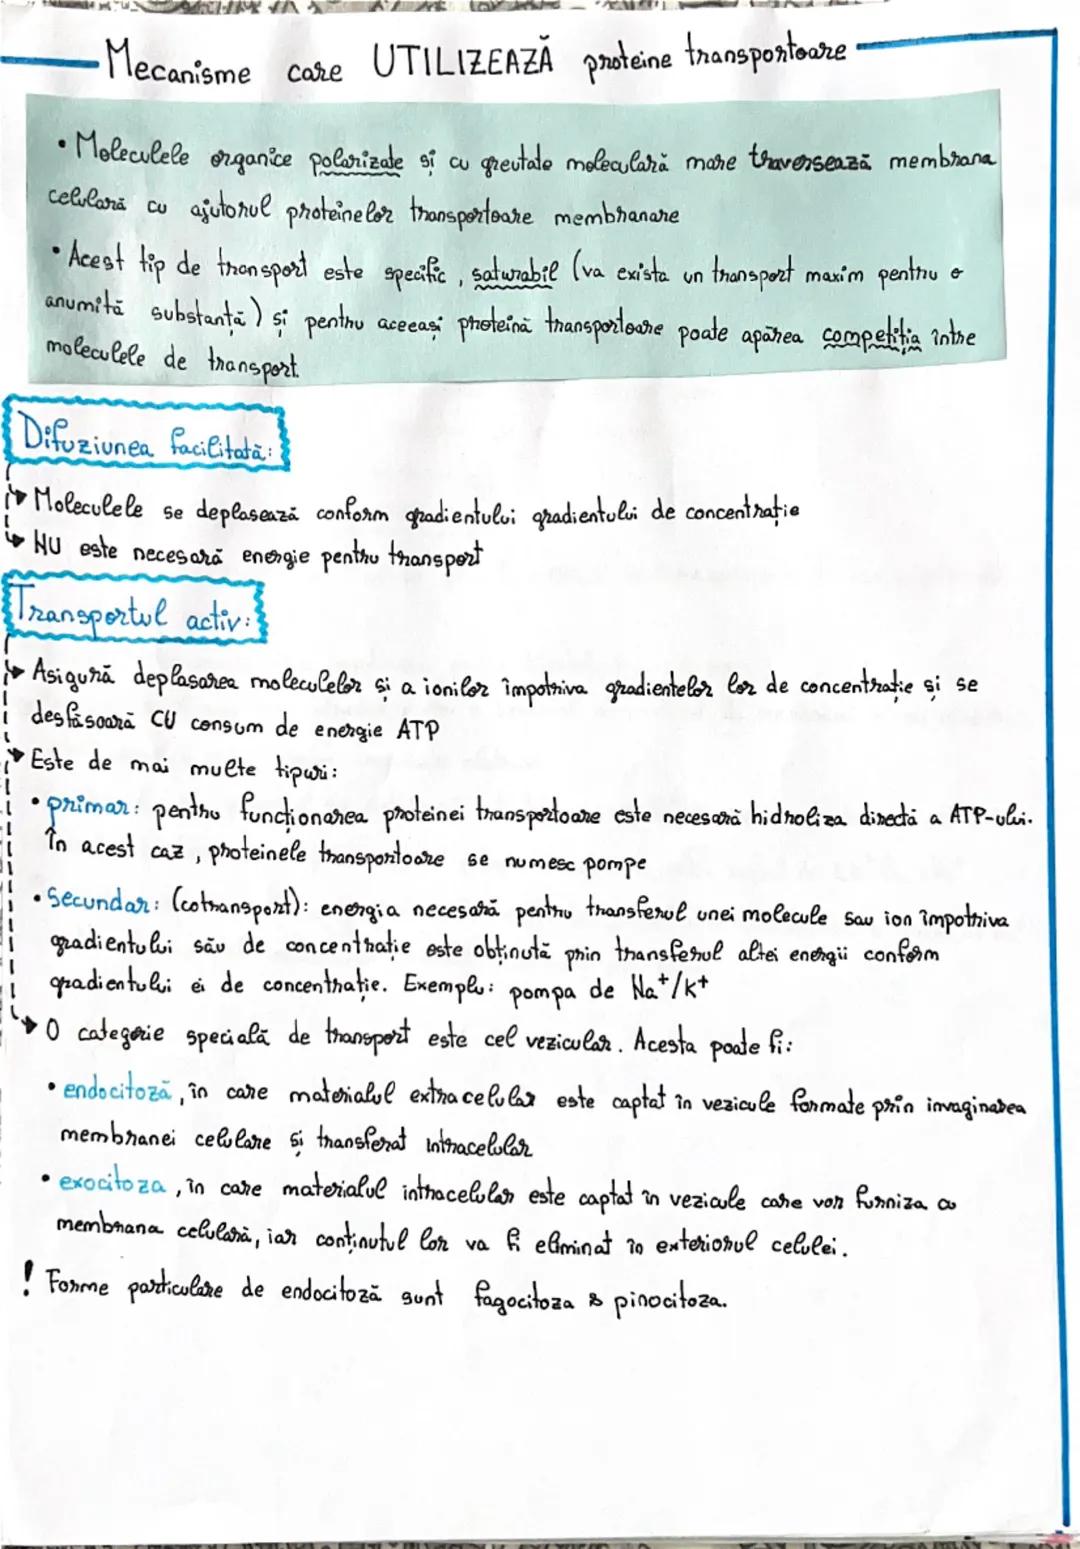 Mecanisme care UTILIZEAZĂ proteine transportoare
• Moleculele organice polarizate și cu greutate moleculară mare traversează membrana
celulară cu ajutorul proteinelor transportoare membranare
• Acest tip de transport este specific, saturabil (va exista un transport maxim pentru o
anumită substanță) și pentru aceeași proteină transportoare poate apărea competiția între
moleculele de transport.
Difuziunea facilitată:
Moleculele se deplasează conform gradientului gradientului de concentrație
NU este necesară energie pentru transport
Transportul activ:
Asigură deplasarea moleculelor și a ionilor împotriva gradientelor lor de concentrație și se
desfășoară CU consum de energie ATP
Este de mai multe tipuri:
• primar: pentru funcționarea proteinei transportoare este necesară hidroliza directă a ATP-ului.
În acest caz, proteinele transportoare se numesc pompe
• Secundar: (cotransport): energia necesară pentru transferul unei molecule sau ion împotriva
gradientului său de concentrație este obținută prin transferul altei energii conform
gradientului ei de concentrație. Exemplu: pompa de Na+/K+
O categorie specială de transport este cel vezicular. Acesta poate fi:
• endocitoză, în care materialul extracelular este captat în vezicule formate prin invaginarea
membranei celulare și transferat intracelular
• exocitoza, în care materialul intracelular este captat în vezicule care vor furniza cu
membrana celulară, iar conținutul lor va fi eliminat în exteriorul celulei.
! Forme particulare de endocitoză sunt fagocitoza & pinocitoza.